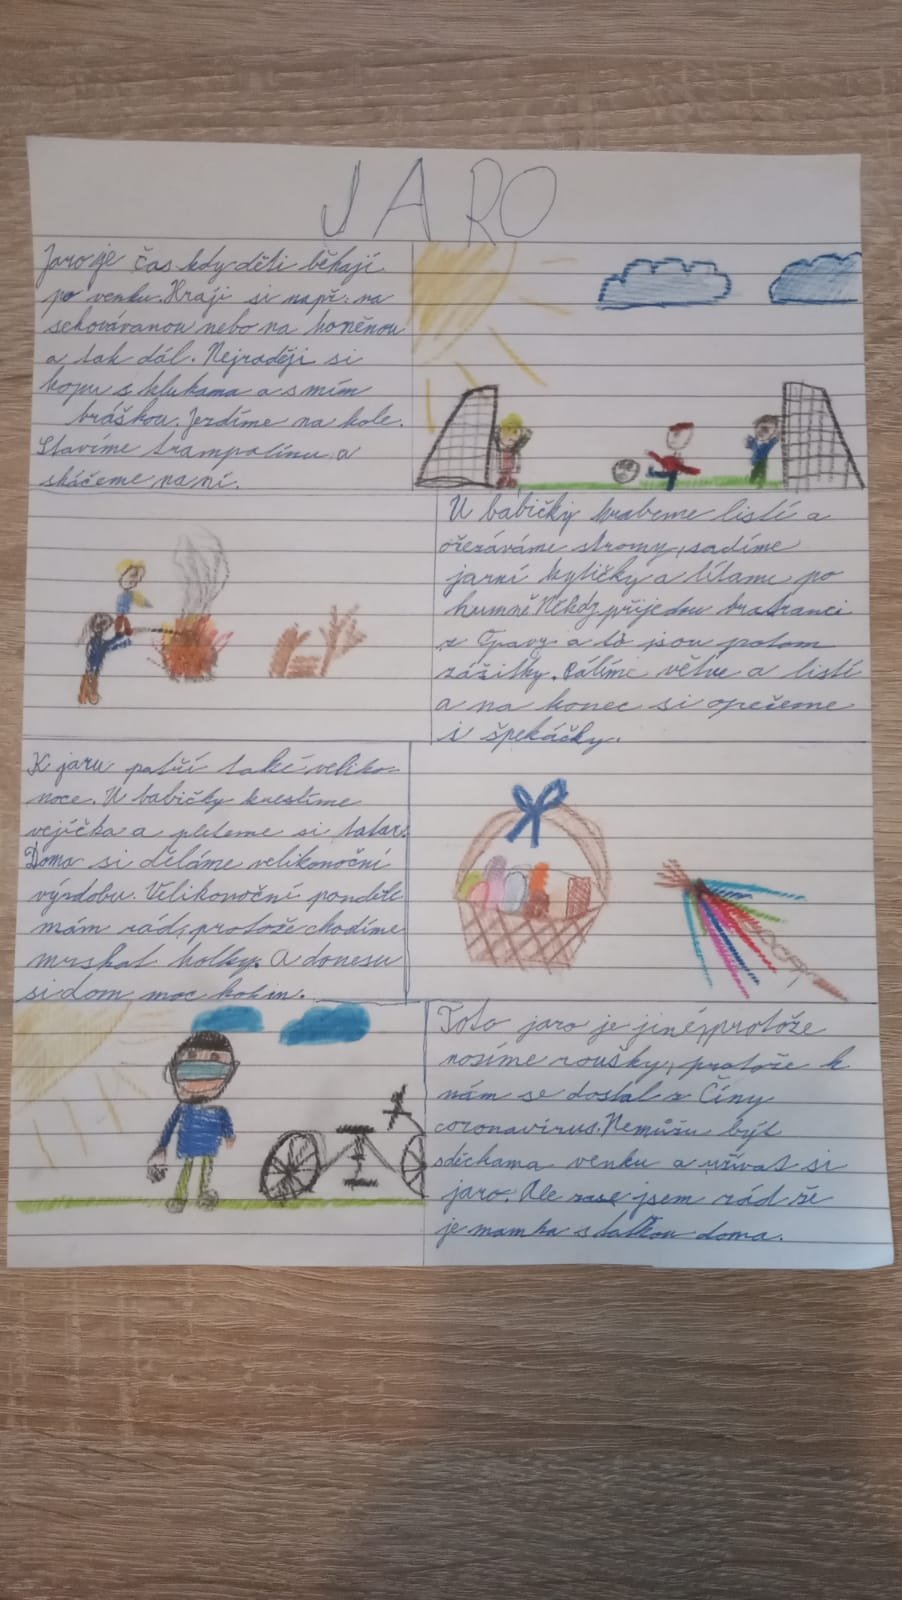 JARO
Jaro je čas kdy děti běhají
po venku. Hrají si např: na
schovávanou nebo na honěnou
a tak dál. Nejraději si
kopu s klukama a s mím
bráškou. Jezdíme na kole.
Stavíme trampolínu a
skáčeme na ní.
U babičky hrabeme listí a
ořezáváme stromy, sadíme
jarní kytičky a lítame po
humně. Někdy přijedou bratranci
z Opavy a to jsou potom
zážitky. Pálíme větve a listí
a na konec si opečeme
i špekáčky.
K jaru patří také veliko-
noce. U babičky kreslíme
vejíčka a pleteme si tatar.
Doma si děláme velikonoční
výzdobu. Velikonoční pondělí
mám rád, protože chodíme
mrskat holky. A donesu
si dom moc kolin.
Toto jaro je jiné, protože
nosíme roušky, protože k
nám se dostal z Číny
coronavirus. Nemůžu být
sděckama venku a užívat si
jaro. Ale zase jsem rád že
je mamka s taťkou doma.